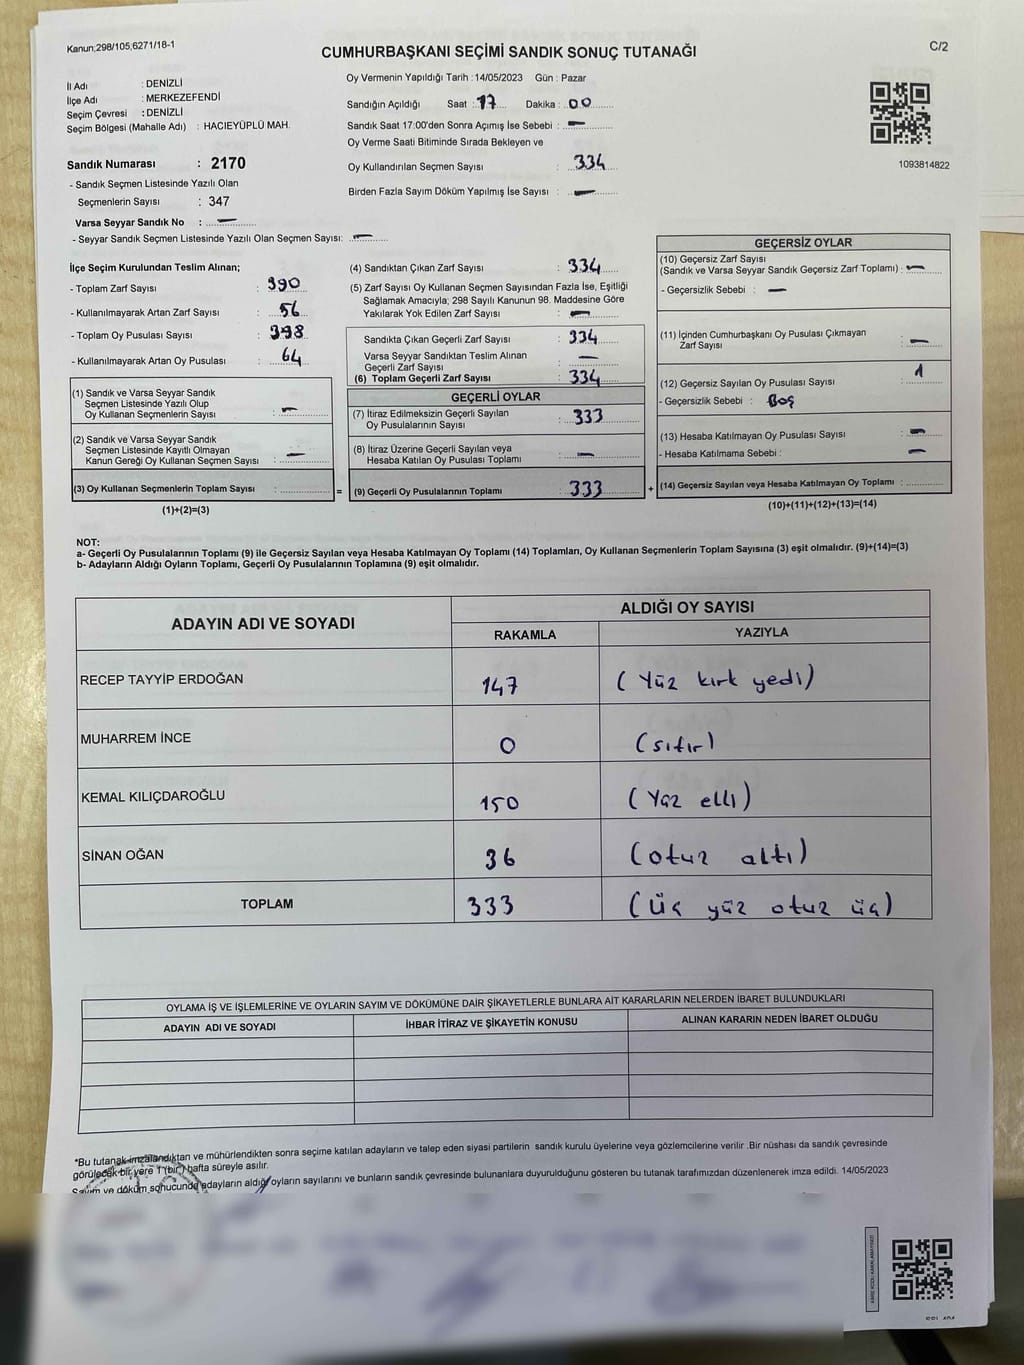 Kanun;298/105;6271/18-1
CUMHURBAŞKANI SEÇİMİ SANDIK SONUÇ TUTANAĞI
C/2
İl Adı : DENİZLİ
İlçe Adı : MERKEZEFENDİ
Seçim Çevresi : DENİZLİ
Seçim Bölgesi (Mahalle Adı) : HACIEYÜPLÜ MAH.
Sandık Numarası : 2170
- Sandık Seçmen Listesinde Yazılı Olan
Seçmenlerin Sayısı : 347
Varsa Seyyar Sandık No : —
- Seyyar Sandık Seçmen Listesinde Yazılı Olan Seçmen Sayısı: —
Oy Vermenin Yapıldığı Tarih : 14/05/2023 Gün : Pazar
Sandığın Açıldığı Saat : 17 Dakika : 00
Sandık Saat 17:00'den Sonra Açımış İse Sebebi : —
Oy Verme Saati Bitiminde Sırada Bekleyen ve
Oy Kullandırılan Seçmen Sayısı : 334
Birden Fazla Sayım Döküm Yapılmış İse Sayısı : —
1093814822
İlçe Seçim Kurulundan Teslim Alınan;
- Toplam Zarf Sayısı : 390
- Kullanılmayarak Artan Zarf Sayısı : 56
- Toplam Oy Pusulası Sayısı : 398
- Kullanılmayarak Artan Oy Pusulası : 64
(1) Sandık ve Varsa Seyyar Sandık
Seçmen Listesinde Yazılı Olup
Oy Kullanan Seçmenlerin Sayısı : —
(2) Sandık ve Varsa Seyyar Sandık
Seçmen Listesinde Kayıtlı Olmayan
Kanun Gereği Oy Kullanan Seçmen Sayısı : —
(3) Oy Kullanan Seçmenlerin Toplam Sayısı :
(1)+(2)=(3)
(4) Sandıktan Çıkan Zarf Sayısı : 334
(5) Zarf Sayısı Oy Kullanan Seçmen Sayısından Fazla İse, Eşitliği
Sağlamak Amacıyla; 298 Sayılı Kanunun 98. Maddesine Göre
Yakılarak Yok Edilen Zarf Sayısı : —
Sandıkta Çıkan Geçerli Zarf Sayısı : 334
Varsa Seyyar Sandıktan Teslim Alınan
Geçerli Zarf Sayısı : —
(6) Toplam Geçerli Zarf Sayısı : 334
GEÇERLİ OYLAR
(7) İtiraz Edilmeksizin Geçerli Sayılan
Oy Pusulalarının Sayısı : 333
(8) İtiraz Üzerine Geçerli Sayılan veya
Hesaba Katılan Oy Pusulası Toplamı : —
= (9) Geçerli Oy Pusulalarının Toplamı : 333
GEÇERSİZ OYLAR
(10) Geçersiz Zarf Sayısı
(Sandık ve Varsa Seyyar Sandık Geçersiz Zarf Toplamı) : —
- Geçersizlik Sebebi : —
(11) İçinden Cumhurbaşkanı Oy Pusulası Çıkmayan
Zarf Sayısı : —
(12) Geçersiz Sayılan Oy Pusulası Sayısı : 1
- Geçersizlik Sebebi : Boş
(13) Hesaba Katılmayan Oy Pusulası Sayısı : —
- Hesaba Katılmama Sebebi : —
+ (14) Geçersiz Sayılan veya Hesaba Katılmayan Oy Toplamı :
(10)+(11)+(12)+(13)=(14)
NOT:
a- Geçerli Oy Pusulalarının Toplamı (9) ile Geçersiz Sayılan veya Hesaba Katılmayan Oy Toplamı (14) Toplamları, Oy Kullanan Seçmenlerin Toplam Sayısına (3) eşit olmalıdır. (9)+(14)=(3)
b- Adayların Aldığı Oyların Toplamı, Geçerli Oy Pusulalarının Toplamına (9) eşit olmalıdır.
ADAYIN ADI VE SOYADI
ALDIĞI OY SAYISI
RAKAMLA YAZIYLA
RECEP TAYYİP ERDOĞAN 147 (Yüz kırk yedi)
MUHARREM İNCE 0 (sıfır)
KEMAL KILIÇDAROĞLU 150 (Yüz elli)
SİNAN OĞAN 36 (otuz altı)
TOPLAM 333 (Üç yüz otuz üç)
OYLAMA İŞ VE İŞLEMLERİNE VE OYLARIN SAYIM VE DÖKÜMÜNE DAİR ŞİKAYETLERLE BUNLARA AİT KARARLARIN NELERDEN İBARET BULUNDUKLARI
ADAYIN ADI VE SOYADI İHBAR İTİRAZ VE ŞİKAYETİN KONUSU ALINAN KARARIN NEDEN İBARET OLDUĞU
*Bu tutanak imzalandıktan ve mühürlendikten sonra seçime katılan adayların ve talep eden siyasi partilerin sandık kurulu üyelerine veya gözlemcilerine verilir .Bir nüshası da sandık çevresinde
görülecek bir yere 1 (bir) hafta süreyle asılır.
Sayım ve döküm sonucunda adayların aldığı oyların sayılarını ve bunların sandık çevresinde bulunanlara duyurulduğunu gösteren bu tutanak tarafımızdan düzenlenerek imza edildi. 14/05/2023